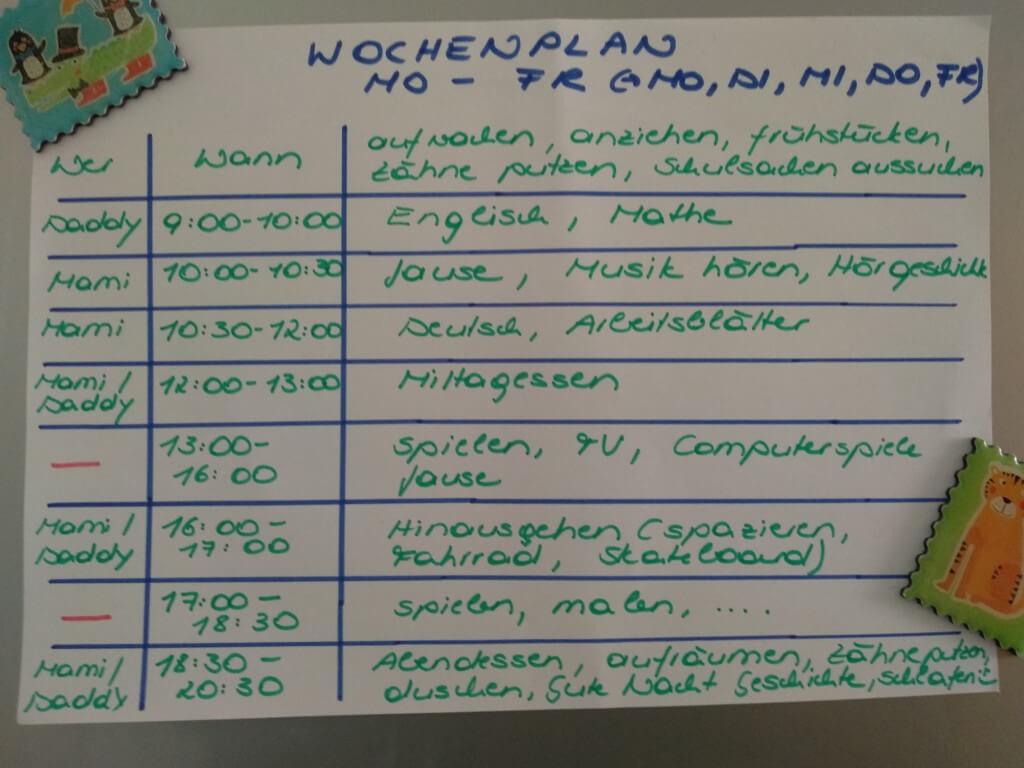 WOCHENPLAN
MO - FR (=MO, DI, MI, DO, FR)
Wer Wann aufwachen, anziehen, frühstücken,
Zähne putzen, Schulsachen aussuchen
Daddy 9:00-10:00 Englisch, Mathe
Mami 10:00-10:30 Jause, Musik hören, Hörgeschichte
Mami 10:30-12:00 Deutsch, Arbeitsblätter
Mami/ Daddy 12:00-13:00 Mittagessen
— 13:00- spielen, TV, Computerspiele
16:00 Jause
Mami/ 16:00- Hinausgehen (spazieren,
Daddy 17:00 Fahrrad, Skateboard)
— 17:00- spielen, malen, ....
18:30
Mami/ 18:30- Abendessen, aufräumen, Zähneputzen,
Daddy 20:30 duschen, Gute Nacht Geschichte, schlafen